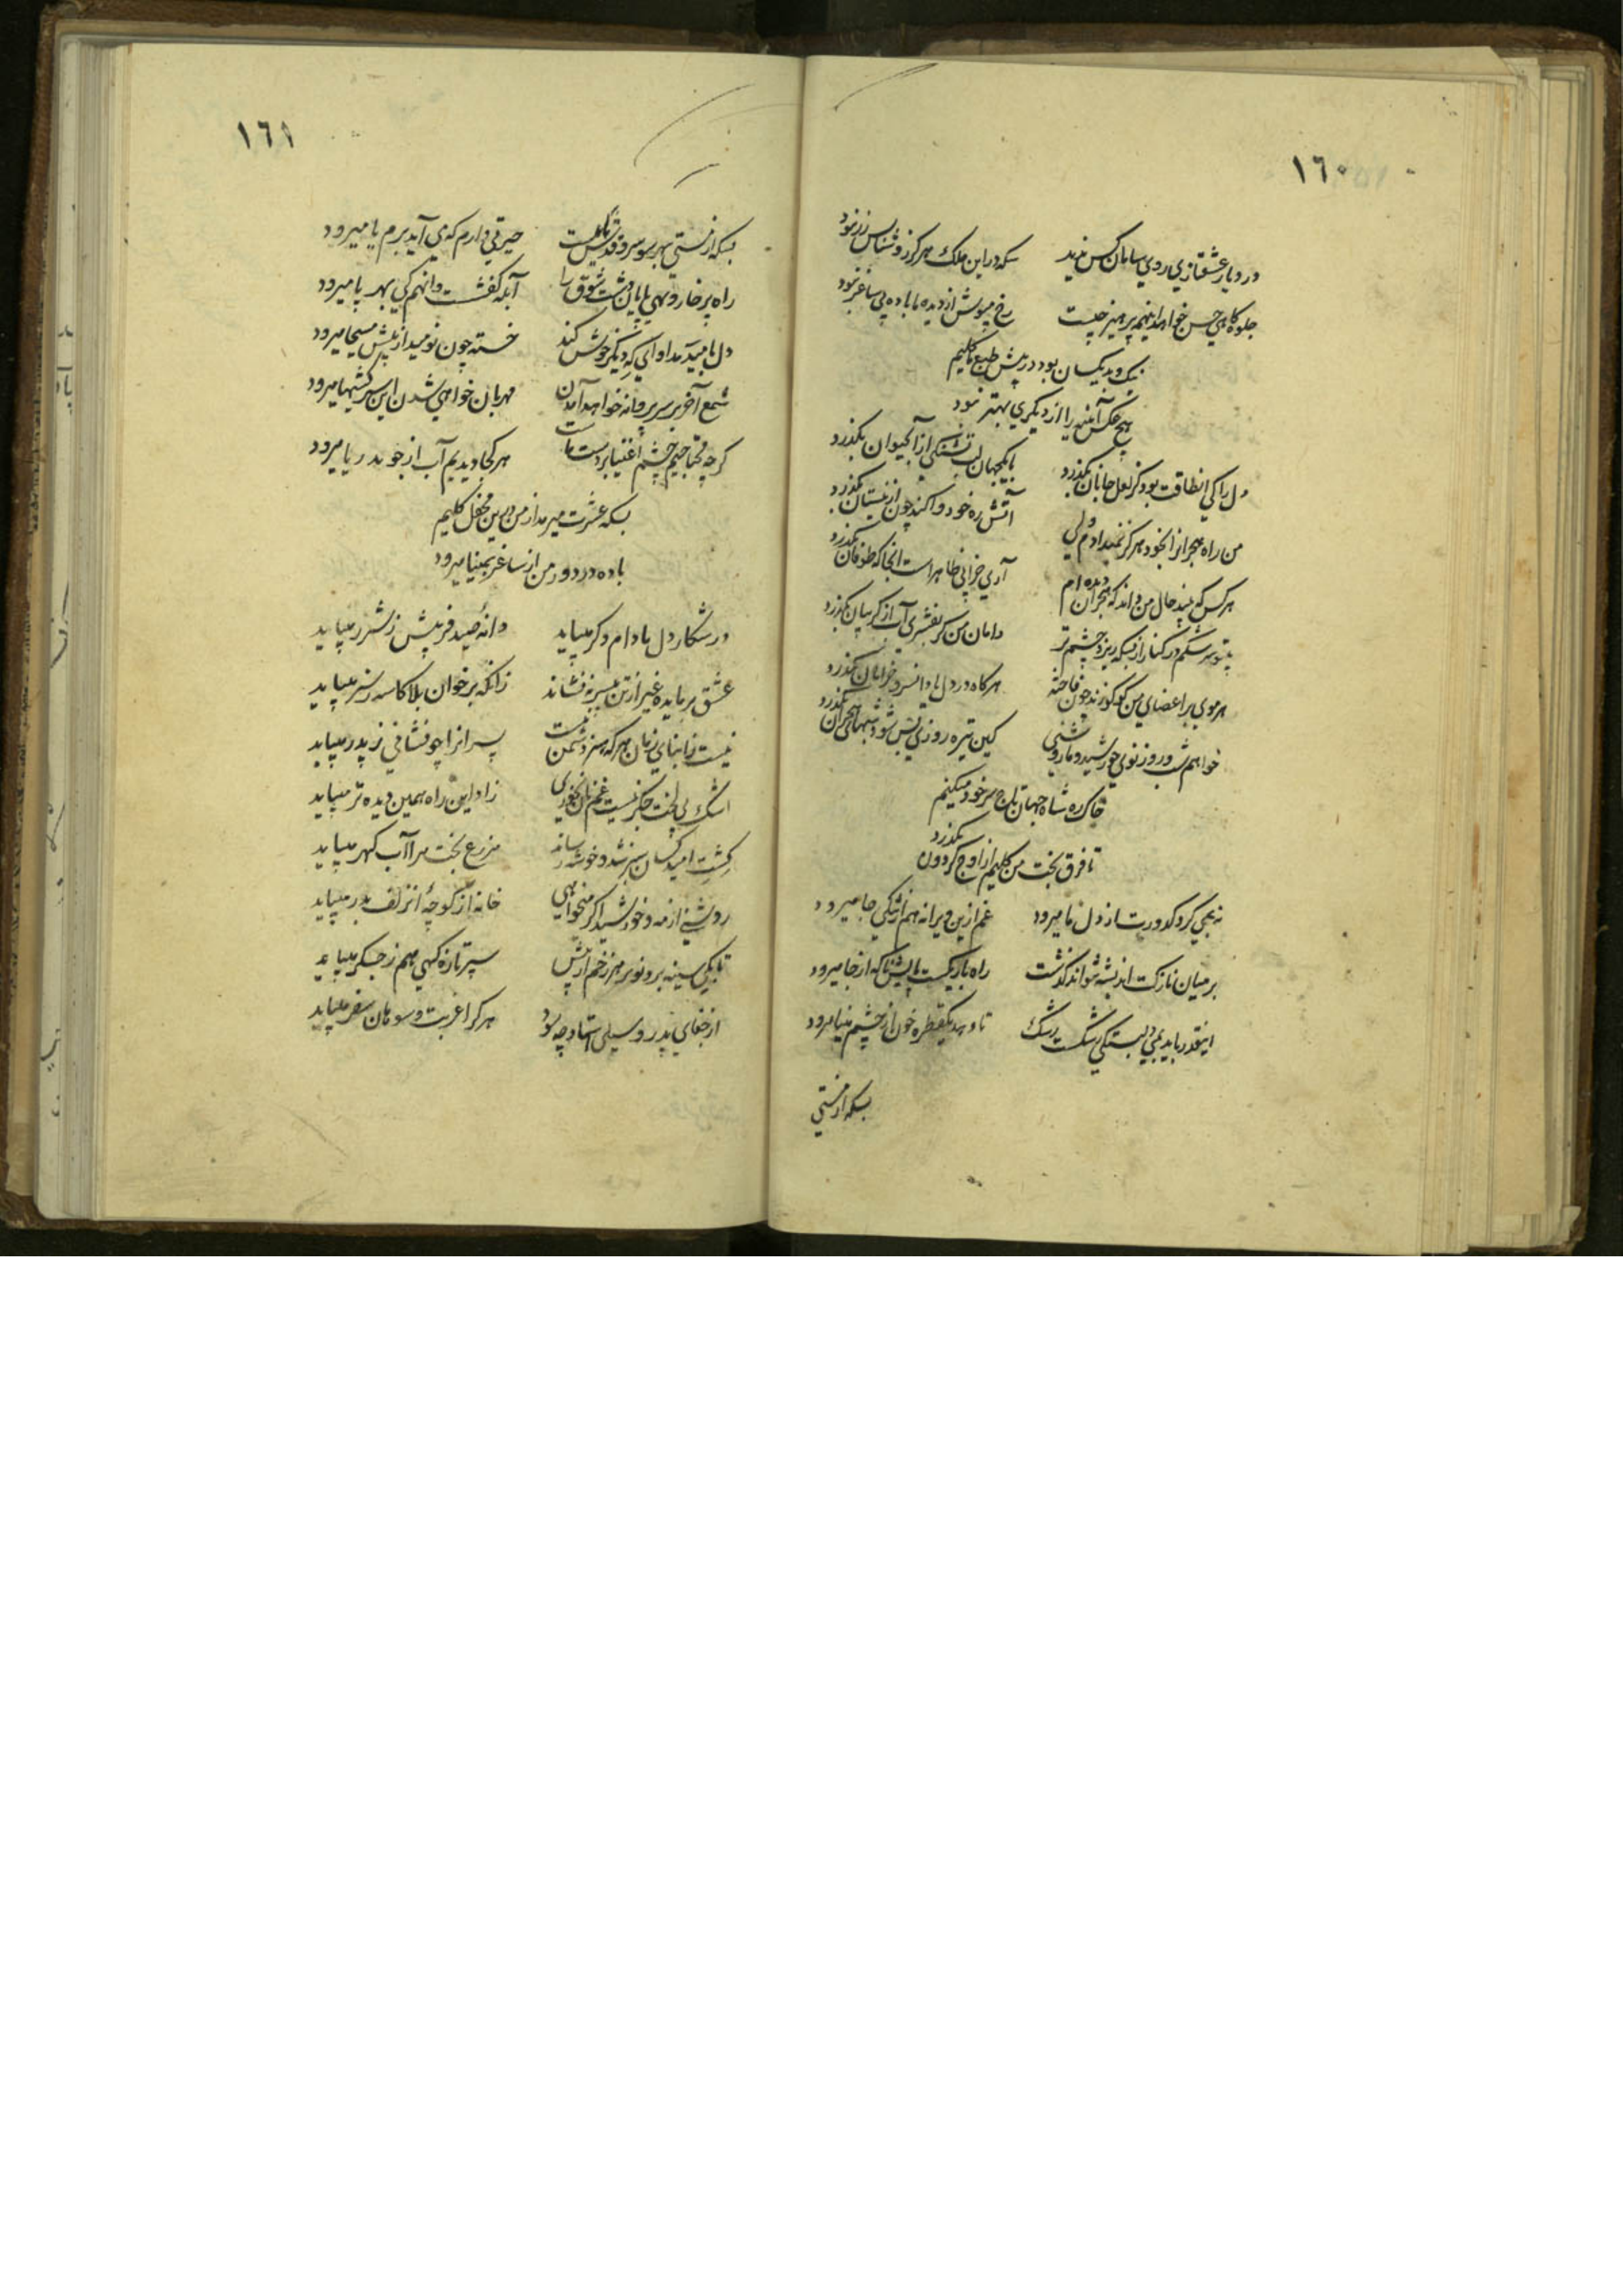 ١٦٠
در دیار عشقبازی روی سامان کس ندید
سکه در این ملک هرگز روشناس زر نبود
جلوه‌کاهی حسن خواهد اینهمه پرهیز چیست
رخ مپوش از دیده ما باده بی ساغر نبود
نیک و بد یکسان بود در پیش طبع ما کلیم
هیچ عکس آینه را از دیگری بهتر نمود
دل را کی انطاقت بود کز لعل جانان بگذرد
با یکجهان لب تشنگی از آبحیوان بگذرد
من راه هجر انرا بخود هرگز نمیدادم ولی
آتش ره خود وا کند چون از نیستان بگذرد
هر کس که بیند حال من داند که هجران دیده‌ام
آری خرابی ظاهر است انجا که طوفان بگذرد
سرشکم در کنار از بسکه ریزد چشم تر
دامان من گر بفشری آب از گریبان بگذرد
هر موی بر اعضای من کوکو زند چون فاخته
هرکاه در دل یاد انسرو خرامان بگذرد
خواهم شب و روز نوی خورشید و ماه روشنی
کین تیره روزی بس شود شبهای هجران بگذرد
خاک ره شاه جهان تاج سر خود میکنم
تا فرق بخت من کلیم از اوج گردون بگذرد
نه همی گرد کدورت از دل ما میرود
غم ازین ویرانه هم از تنکی جا میرود
بر میان نازکت اندیشه نتواند گذشت
راه باریکست پایش ناکه از جا میرود
اینقدر باید بهم دلبستگی رشکست رشک
تا دهد یکقطره خون از چشم مینا میرود
بسکه از مستی
١٦١
بسکه از مستی بهر سو سرو قدش مایلست
حیرتی دارم که می آید برم یا میرود
راه پر خار و تهی پایان دشت شوق را
آبله کفشست وانهم کی بهر پا میرود
دل نامید مداوای که دیگر خوش کند
خسته چون نومید از پیش مسیحا میرود
شمع آخر بر سر پروانه خواهد آمدن
مهربان خواهی شدن این سرکشیها میرود
گرچه محتاجیم چشم اغنیا بر دست ماست
هر کجا دیدیم آب از جو بدریا میرود
بسکه عشرت میرمد از من درین محفل کلیم
باده در دور من از ساغر بمینا میرود
در شکار دل ما دام دگر میباید
دانه صید فریبش ز شرر میباید
عشق بر مایده غیر از تن بیسر ننشاند
زانکه بر خوان بلا کاسه سر میباید
نیست ز ابنای زمان هر که هنر دشمن نیست
پسر انرا چو نشانی ز پدر میباید
اشک بی لخت جگر نیست غم نان نخوری
زاد این راه همین دیده تر میباید
کشت امید کسان سبز شد و خوشه رساند
مزرع بخت مرا آب گهر میباید
روشنی از مه و خورشید اگر میخواهی
خانه از کوچه انزلف بدر میباید
تا بکی سینه برو نو بر هر زخم ازتش
سپر تازه گهی هم ز جگر میباید
از جفای پدر و سیلی استاد چه سود
هر کرا غربت و سوهان سفر میباید